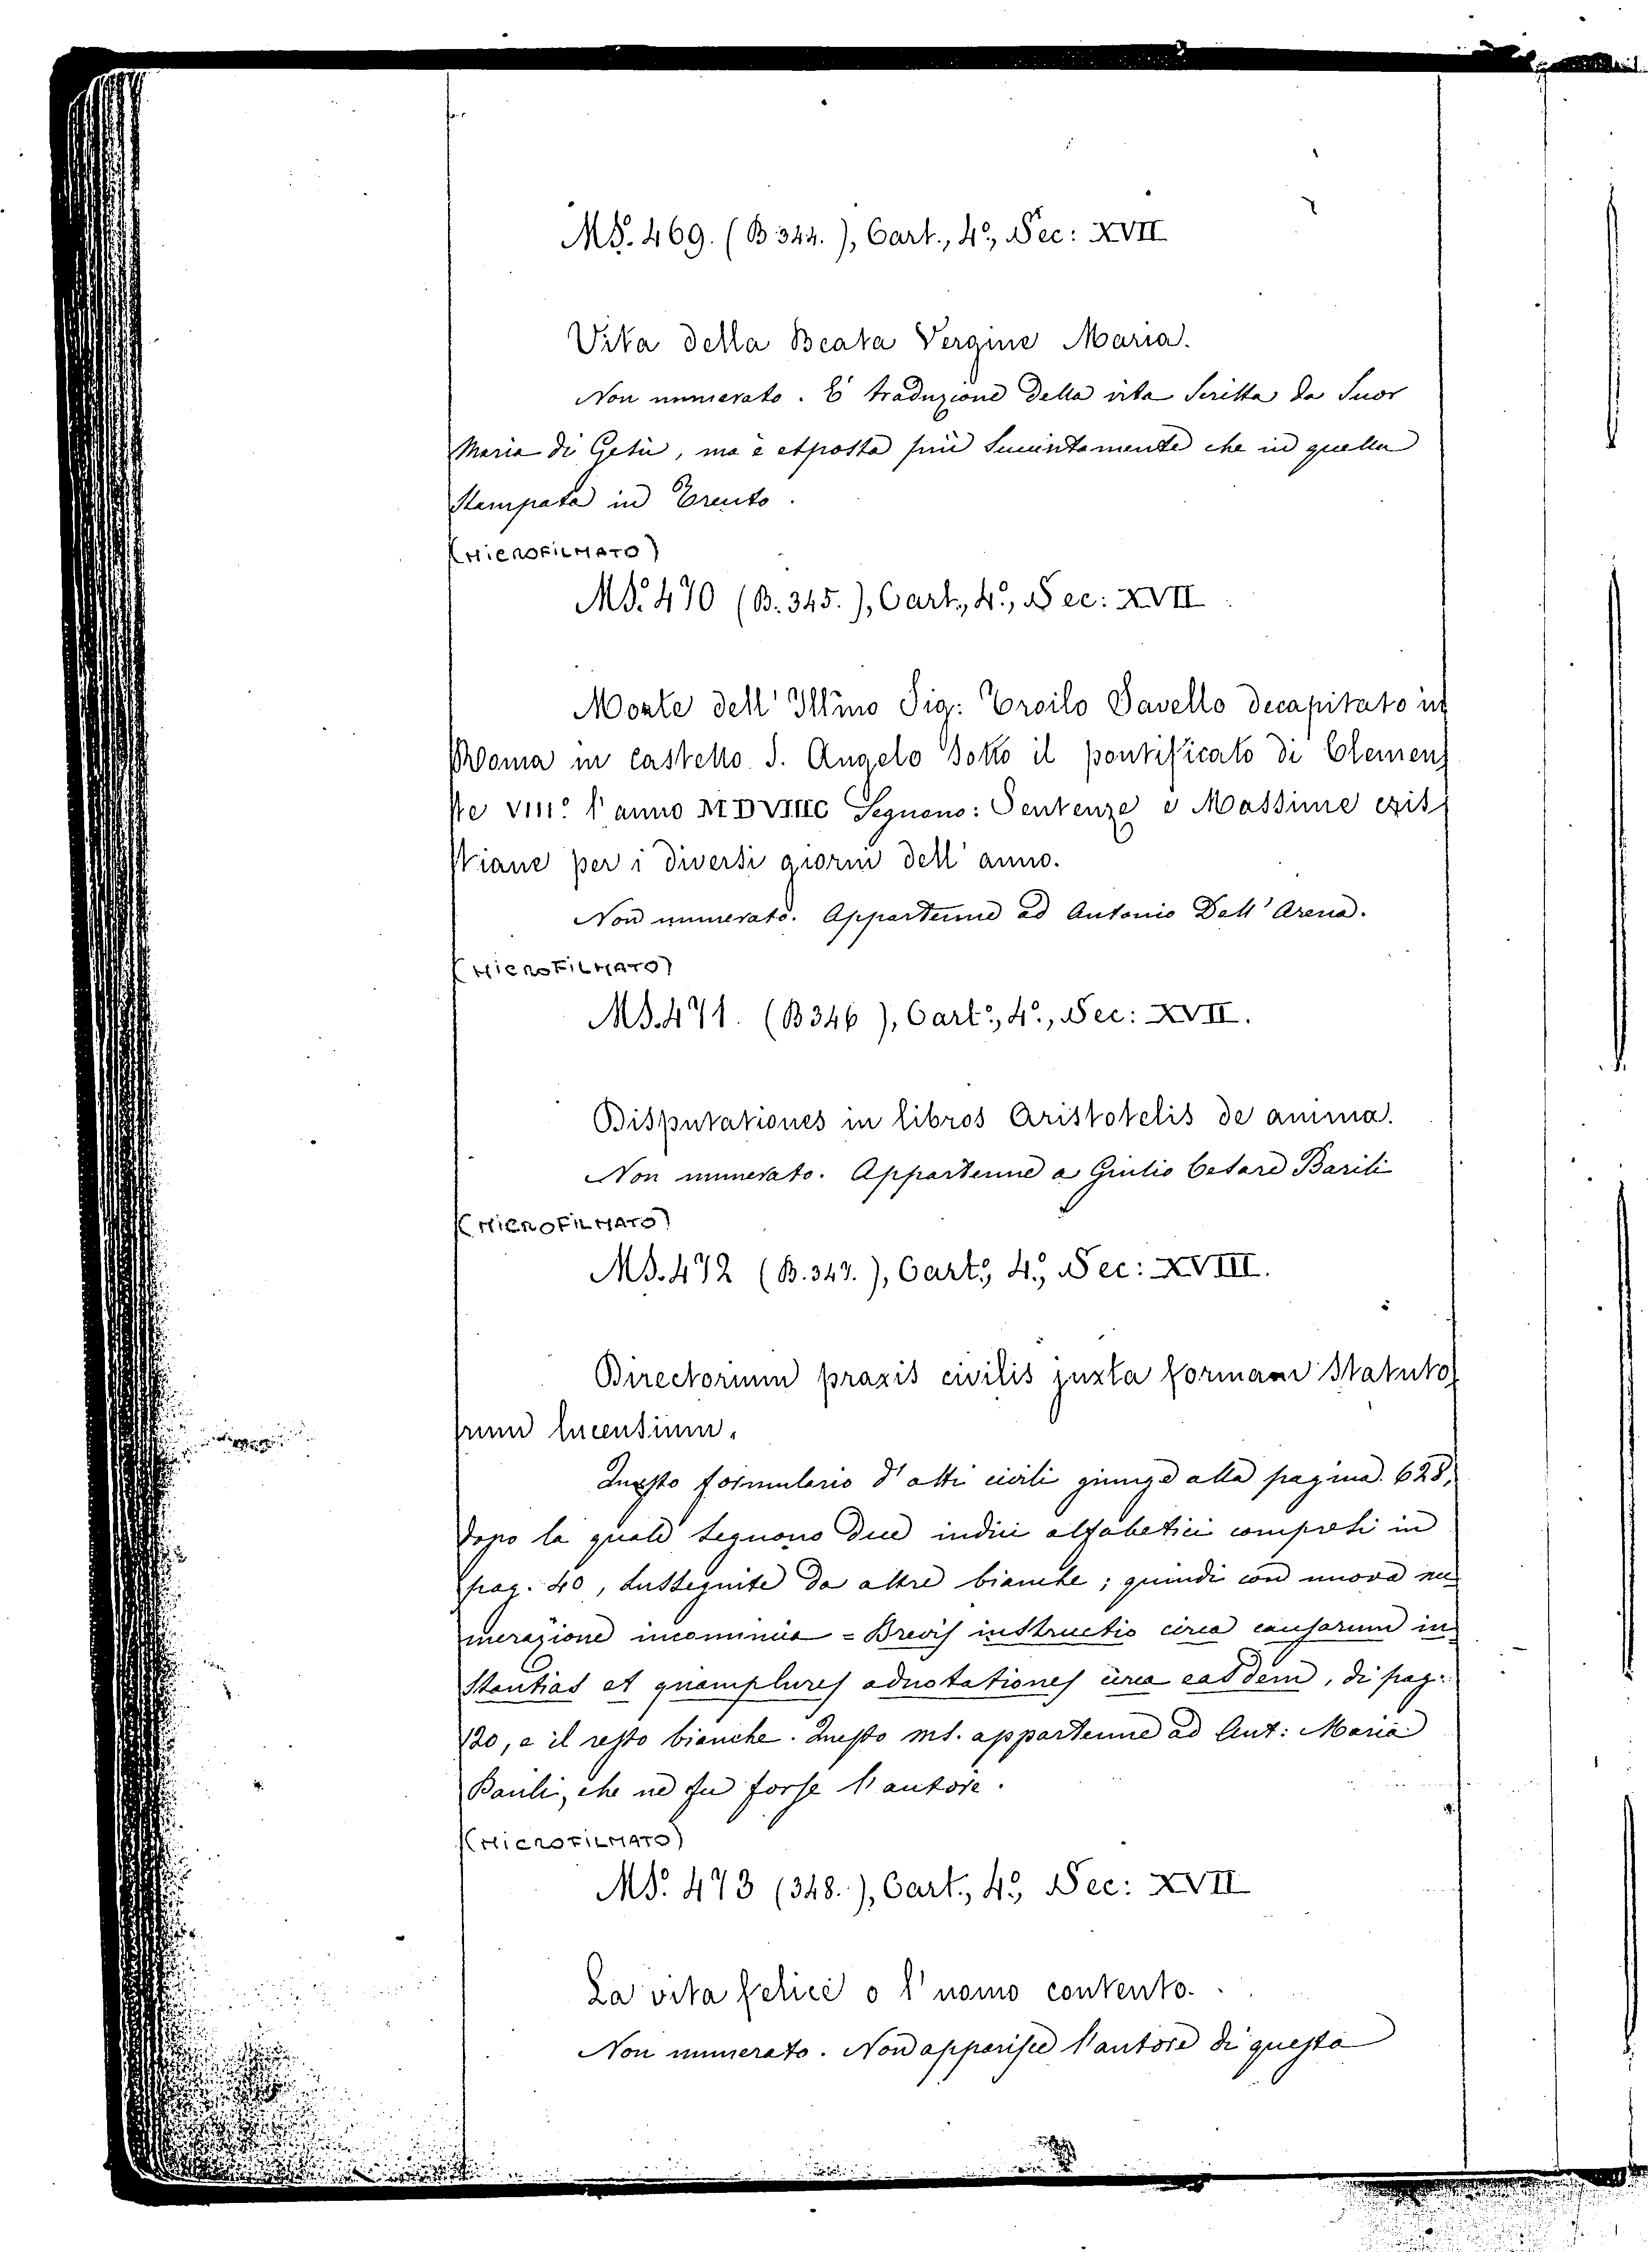 MS. 469. (B 344.), Cart., 4º, Sec: XVII
Vita della Beata Vergine Maria.
Non numerato. È traduzione della vita scritta da Suor
Maria di Gesù, ma è esposta più succintamente che in quella
stampata in Trento.
(MICROFILMATO)
MS. 470 (B. 345.), Cart., 4º, Sec: XVII
Morte dell' Illmo Sig: Troilo Savello decapitato in
Roma in castello S. Angelo sotto il pontificato di Clemen
te VIIIº l'anno MDVIIIC Seguono: Sentenze e Massime cris
tiane per i diversi giorni dell' anno.
Non numerato. Appartenne ad Antonio Dell' Arena.
(MICROFILMATO)
MS. 471. (B 346), Cart., 4º, Sec: XVII.
Disputationes in libros Aristotelis de anima.
Non numerato. Appartenne a Giulio Cesare Barili
(MICROFILMATO)
MS. 472 (B. 347.), Cart., 4º, Sec: XVIII.
Directorium praxis civilis juxta formam Statuto
rum lucensium.
Questo formulario d'atti civili giunge alla pagina 628,
dopo la quale seguono due indici alfabetici compresi in
pag. 40, susseguite da altre bianche; quindi con nuova nu
merazione incomincia = Brevis instructio circa causarum in
stantias et quamplures adnotationes circa easdem, di pag:
120, e il resto bianche. Questo ms. appartenne ad Ant: Maria
Pauli, che ne fu forse l'autore.
(MICROFILMATO)
MS. 473 (348.), Cart., 4º, Sec: XVII
La vita felice o l'uomo contento.
Non numerato. Non apparisce l'autore di questa